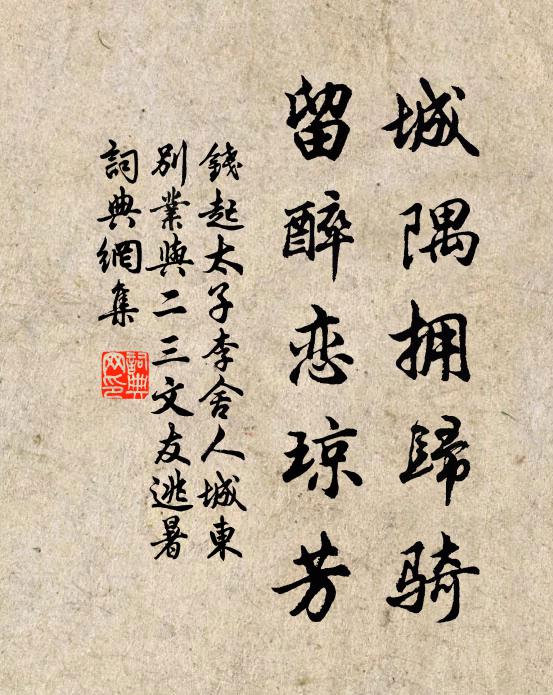 城隅拥歸骑
留醉恋琼芳
錢起太子李舍人城東
別業與二三文友逃暑
詞典網集
詞典
网印